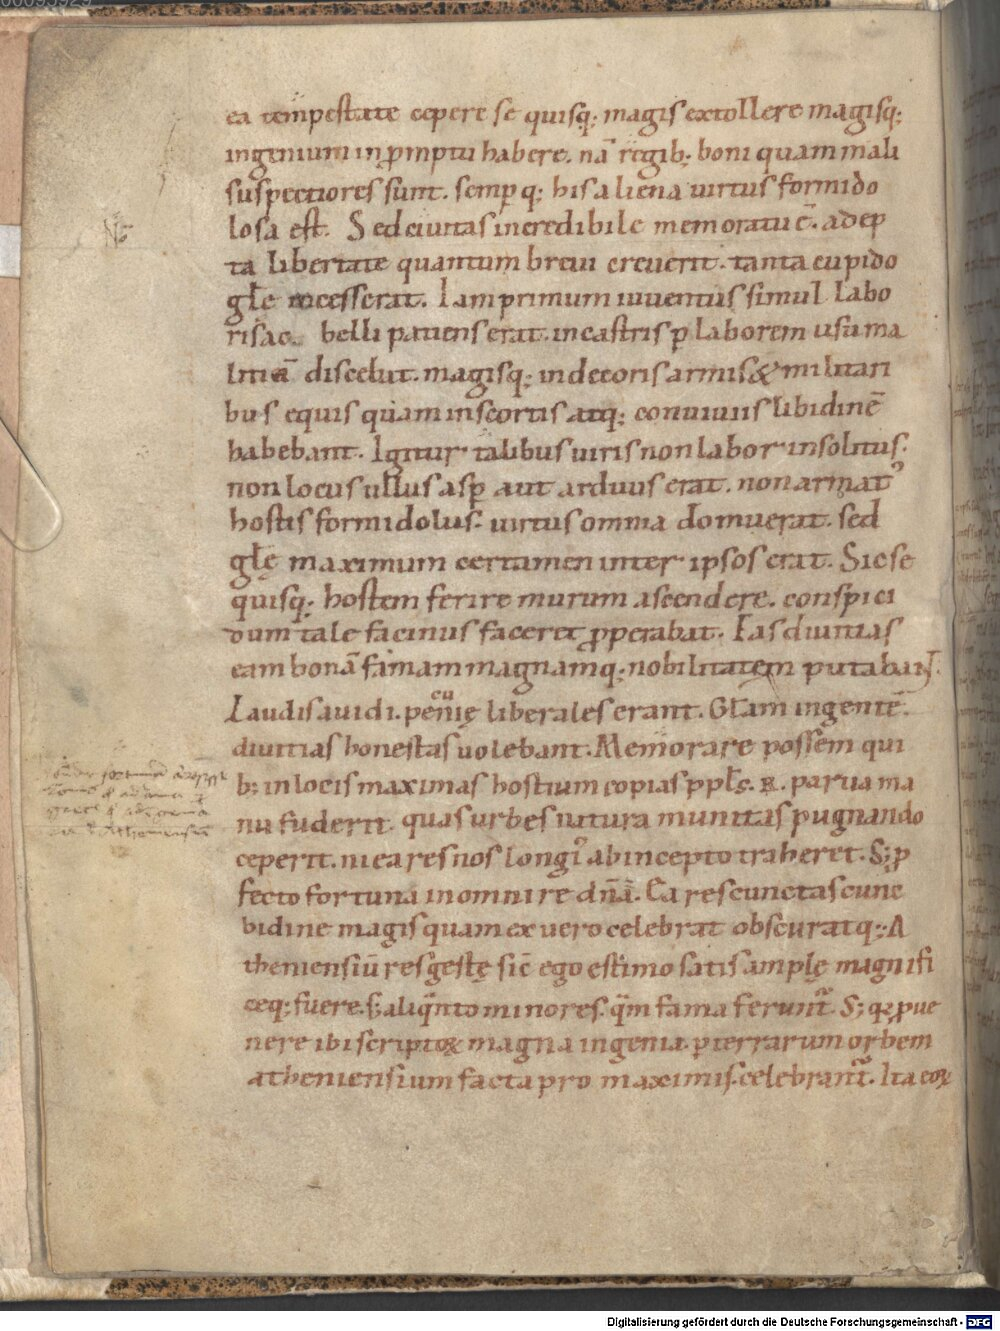 ea tempestate cepere se quisq; magis extollere magisq;
ingenium in p̄mptu habere. nā regib; boni quam mali
suspectiores sunt. semp q; his aliena uirtus formido
losa est. Sed ciuitas incredibile memoratu ē. adep
ta libertate quantum breui creuerit. tanta cupido
glę incesserat. Iam primum iuuentus simul labo
ris ac belli patiens erat. in castris p laborem usū ma
litiā discebat. magisq; in decoris armis & militari
bus equis quam in scortis atq; conuiuiis libidinē
habebant. Igitur talibus uiris non labor insolitus.
non locus ullus asp aut arduus erat. non armat᾽
hostis formidolus. uirtus omnia domuerat. sed
glę maximum certamen inter ipsos erat. Sic se
quisq; hostem ferire murum ascendere. conspici
dum tale facinus faceret pperabat. Eas diuitias
eam bonā famam magnamq; nobilitatem putabant.
Laudis auidi. pecunię liberales erant. Glam ingentē.
diuitias honestas uolebant. Memorare possem qui
b; in locis maximas hostium copias ppls. R. parua ma
nu fuderit. quas urbes natura munitas pugnando
ceperit. ni ea res nos longi᾽ ab incepto traheret. S; p
fecto fortuna in omni re dn̄ā. Ea res cunctas
bidine magis quam ex uero celebrat obscuratq;. A
theniensiū res gestę sic̄ ego estimo satis amplę magnifi
ceq; fuere. s; aliq̄nto minores. q̄m fama ferunt᾽. S; q; pue
nere ibi scriptoꝝ magna ingenia. p terrarum orbem
atheniensium facta pro maximis celebrant᾽. Ita eoꝝ
Digitalisierung gefördert durch die Deutsche Forschungsgemeinschaft - DFG